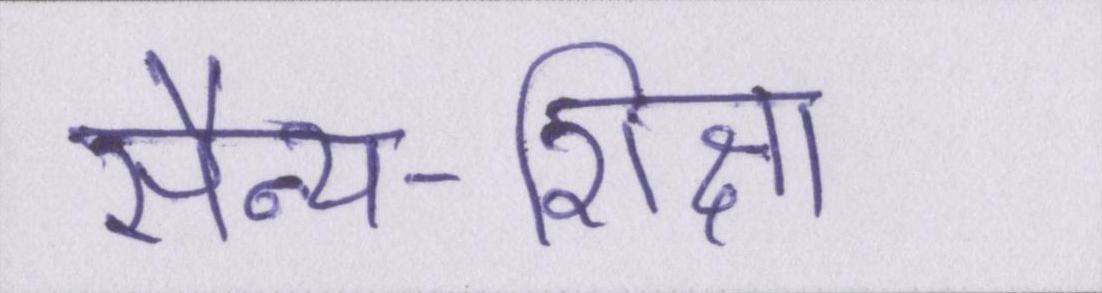 सैन्य-शिक्षा